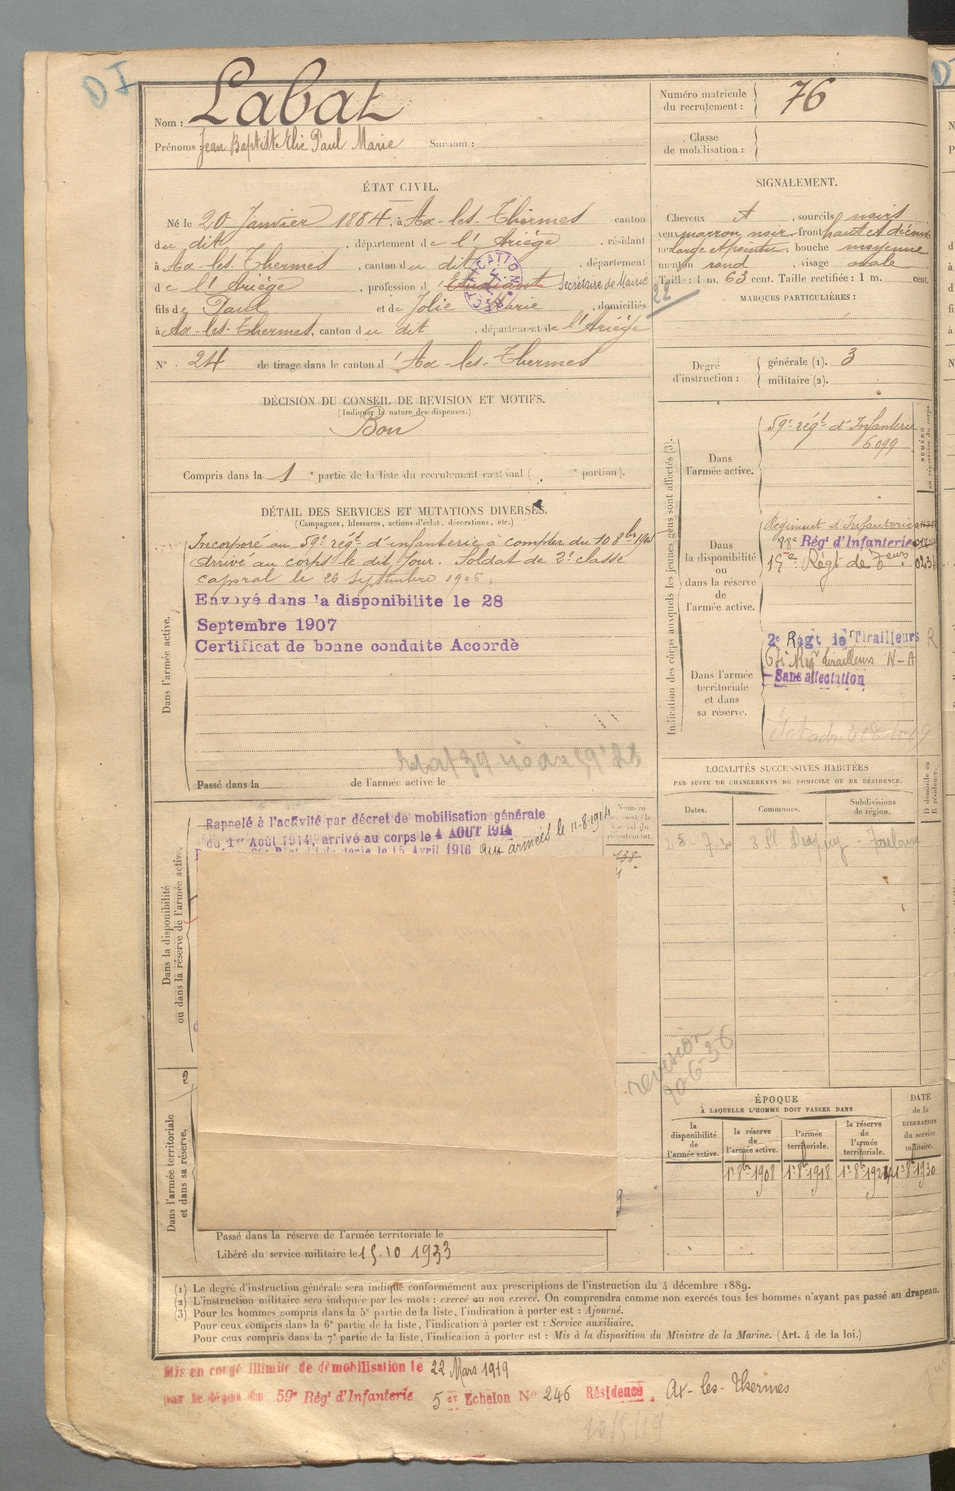 DI
Nom : Labat
Prénoms : Jean Baptiste Elie Paul Marie Surnom :
Numéro matricule du recrutement : 76
Classe de mobilisation :
ÉTAT CIVIL.
Né le 20 Janvier 1884, à Ax-les-Thermes canton
du dit, département de l'Ariège, résidant
à Ax-les-Thermes, canton du dit, département
de l'Ariège, profession d'Etudiant Secrétaire de Mairie
fils de Paul et de Jolie Marie, domiciliés
à Ax-les-Thermes, canton du dit, département de l'Ariège
N° 24 de tirage dans le canton d'Ax-les-Thermes
SIGNALEMENT.
Cheveux et, sourcils noirs
yeux marron noir, front haut et
large et, bouche moyenne
menton rond, visage ovale
Taille : 1 m. 63 cent. Taille rectifiée : 1 m. cent.
22
MARQUES PARTICULIÈRES :
Degré d'instruction : générale (1). 3
militaire (2).
DÉCISION DU CONSEIL DE REVISION ET MOTIFS.
(Indiquer la nature des dispenses.)
Bon
Compris dans la 1e partie de la liste du recrutement cantonal ( e portion).
DÉTAIL DES SERVICES ET MUTATIONS DIVERSES.
(Campagnes, blessures, actions d'éclat, décorations, etc.)
Dans l'armée active.
Incorporé au 59e régt d'infanterie à compter du 10 8bre
Arrivé au corps le dit jour. Soldat de 2e classe
caporal le 26 Septembre 1906.
Envoyé dans la disponibilite le 28
Septembre 1907
Certificat de bonne conduite Accordè
Passé dans la de l'armée active le
Indication des corps auxquels les jeunes gens sont affectés (3).
Dans l'armée active.
59e régt d'Infanterie
6099
Dans la disponibilité ou dans la réserve de l'armée active.
Régiment d'Infanterie
Rég' d'Infanterie
15me Régt de
Dans l'armée territoriale et dans sa réserve.
2e Régt de Tirailleurs
tirailleurs N-A
Sans affectation
LOCALITÉS SUCCESSIVES HABITÉES
PAR SUITE DE CHANGEMENTS DE DOMICILE OU DE RÉSIDENCE.
Dates. Communes. Subdivisions de région. D domicile ou R résidence.
Toulouse
Dans la disponibilité ou dans la réserve de l'armée active.
Rappelé à l'activité par décret de mobilisation générale
du 1er Août 1914, arrivé au corps le 4 AOUT 1914
aux armées le 11-8-1914
revision
20-6-36
Dans l'armée territoriale et dans sa réserve.
ÉPOQUE
À LAQUELLE L'HOMME DOIT PASSER DANS
la disponibilité de l'armée active.
la réserve de l'armée active.
l'armée territoriale.
la réserve de l'armée territoriale.
DATE de la LIBÉRATION du service militaire.
1er 8bre 1908 1er 8bre 1918 1er 8bre 1924 1er 8bre 1930
Passé dans la réserve de l'armée territoriale le
Libéré du service militaire le 15-10 1933
(1) Le degré d'instruction générale sera indiqué conformément aux prescriptions de l'instruction du 4 décembre 1889.
(2) L'instruction militaire sera indiquée par les mots : exercé ou non exercé. On comprendra comme non exercés tous les hommes n'ayant pas passé au drapeau.
(3) Pour les hommes compris dans la 5e partie de la liste, l'indication à porter est : Ajourné.
Pour ceux compris dans la 6e partie de la liste, l'indication à porter est : Service auxiliaire.
Pour ceux compris dans la 7e partie de la liste, l'indication à porter est : Mis à la disposition du Ministre de la Marine. (Art. 4 de la loi.)
Mis en congé illimité de démobilisation le 22 Mars 1919
par le dépôt du 59e Rég' d'Infanterie 5e Echelon N° 246 Résidence Ax-les-Thermes